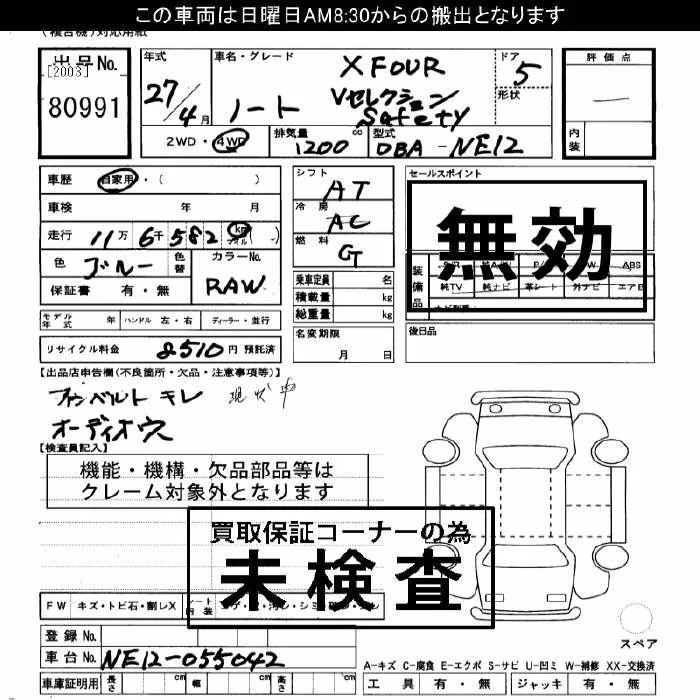 この車両は日曜日AM8:30からの搬出となります
(複合機)対応用紙
出品No.
[2003]
80991
年式
27/4月
車名・グレード
ノート
X FOUR
Vセレクション
Safety
ドア
5
形状
評価点
内装
2WD・4WD
排気量
1200
cc
型式
DBA-NE12
車歴
自家用・( )
車検
年 月
走行
11万6千582
km
マイル
( )
色
ブルー
色替
カラーNo.
RAW
保証書 有・無
シフト
AT
冷房
AC
燃料
G
乗車定員 名
積載量 kg
総重量 kg
名変期限
月 日
セールスポイント
無効
装備品
ABS
純TV
純ナビ
革シート
外ナビ
エアB
後日品
モデル年式 年
ハンドル 左・右
ディーラー・並行
リサイクル料金 8510円 預託済
【出品店申告欄(不良箇所・欠品・注意事項等)】
ファンベルト キレ 現状
オーディオウス
【検査員記入】
機能・機構・欠品部品等は
クレーム対象外となります
買取保証コーナーの為
未検査
FW
キズ・トビ石・割レX
シート内装
登録No.
車台No.
NE12-055042
車庫証明用
長さ cm
幅 cm
高さ cm
スペア
A-キズ C-腐食 E-エクボ S-サビ U-凹ミ W-補修 XX-交換済
工具 有・無
ジャッキ 有・無